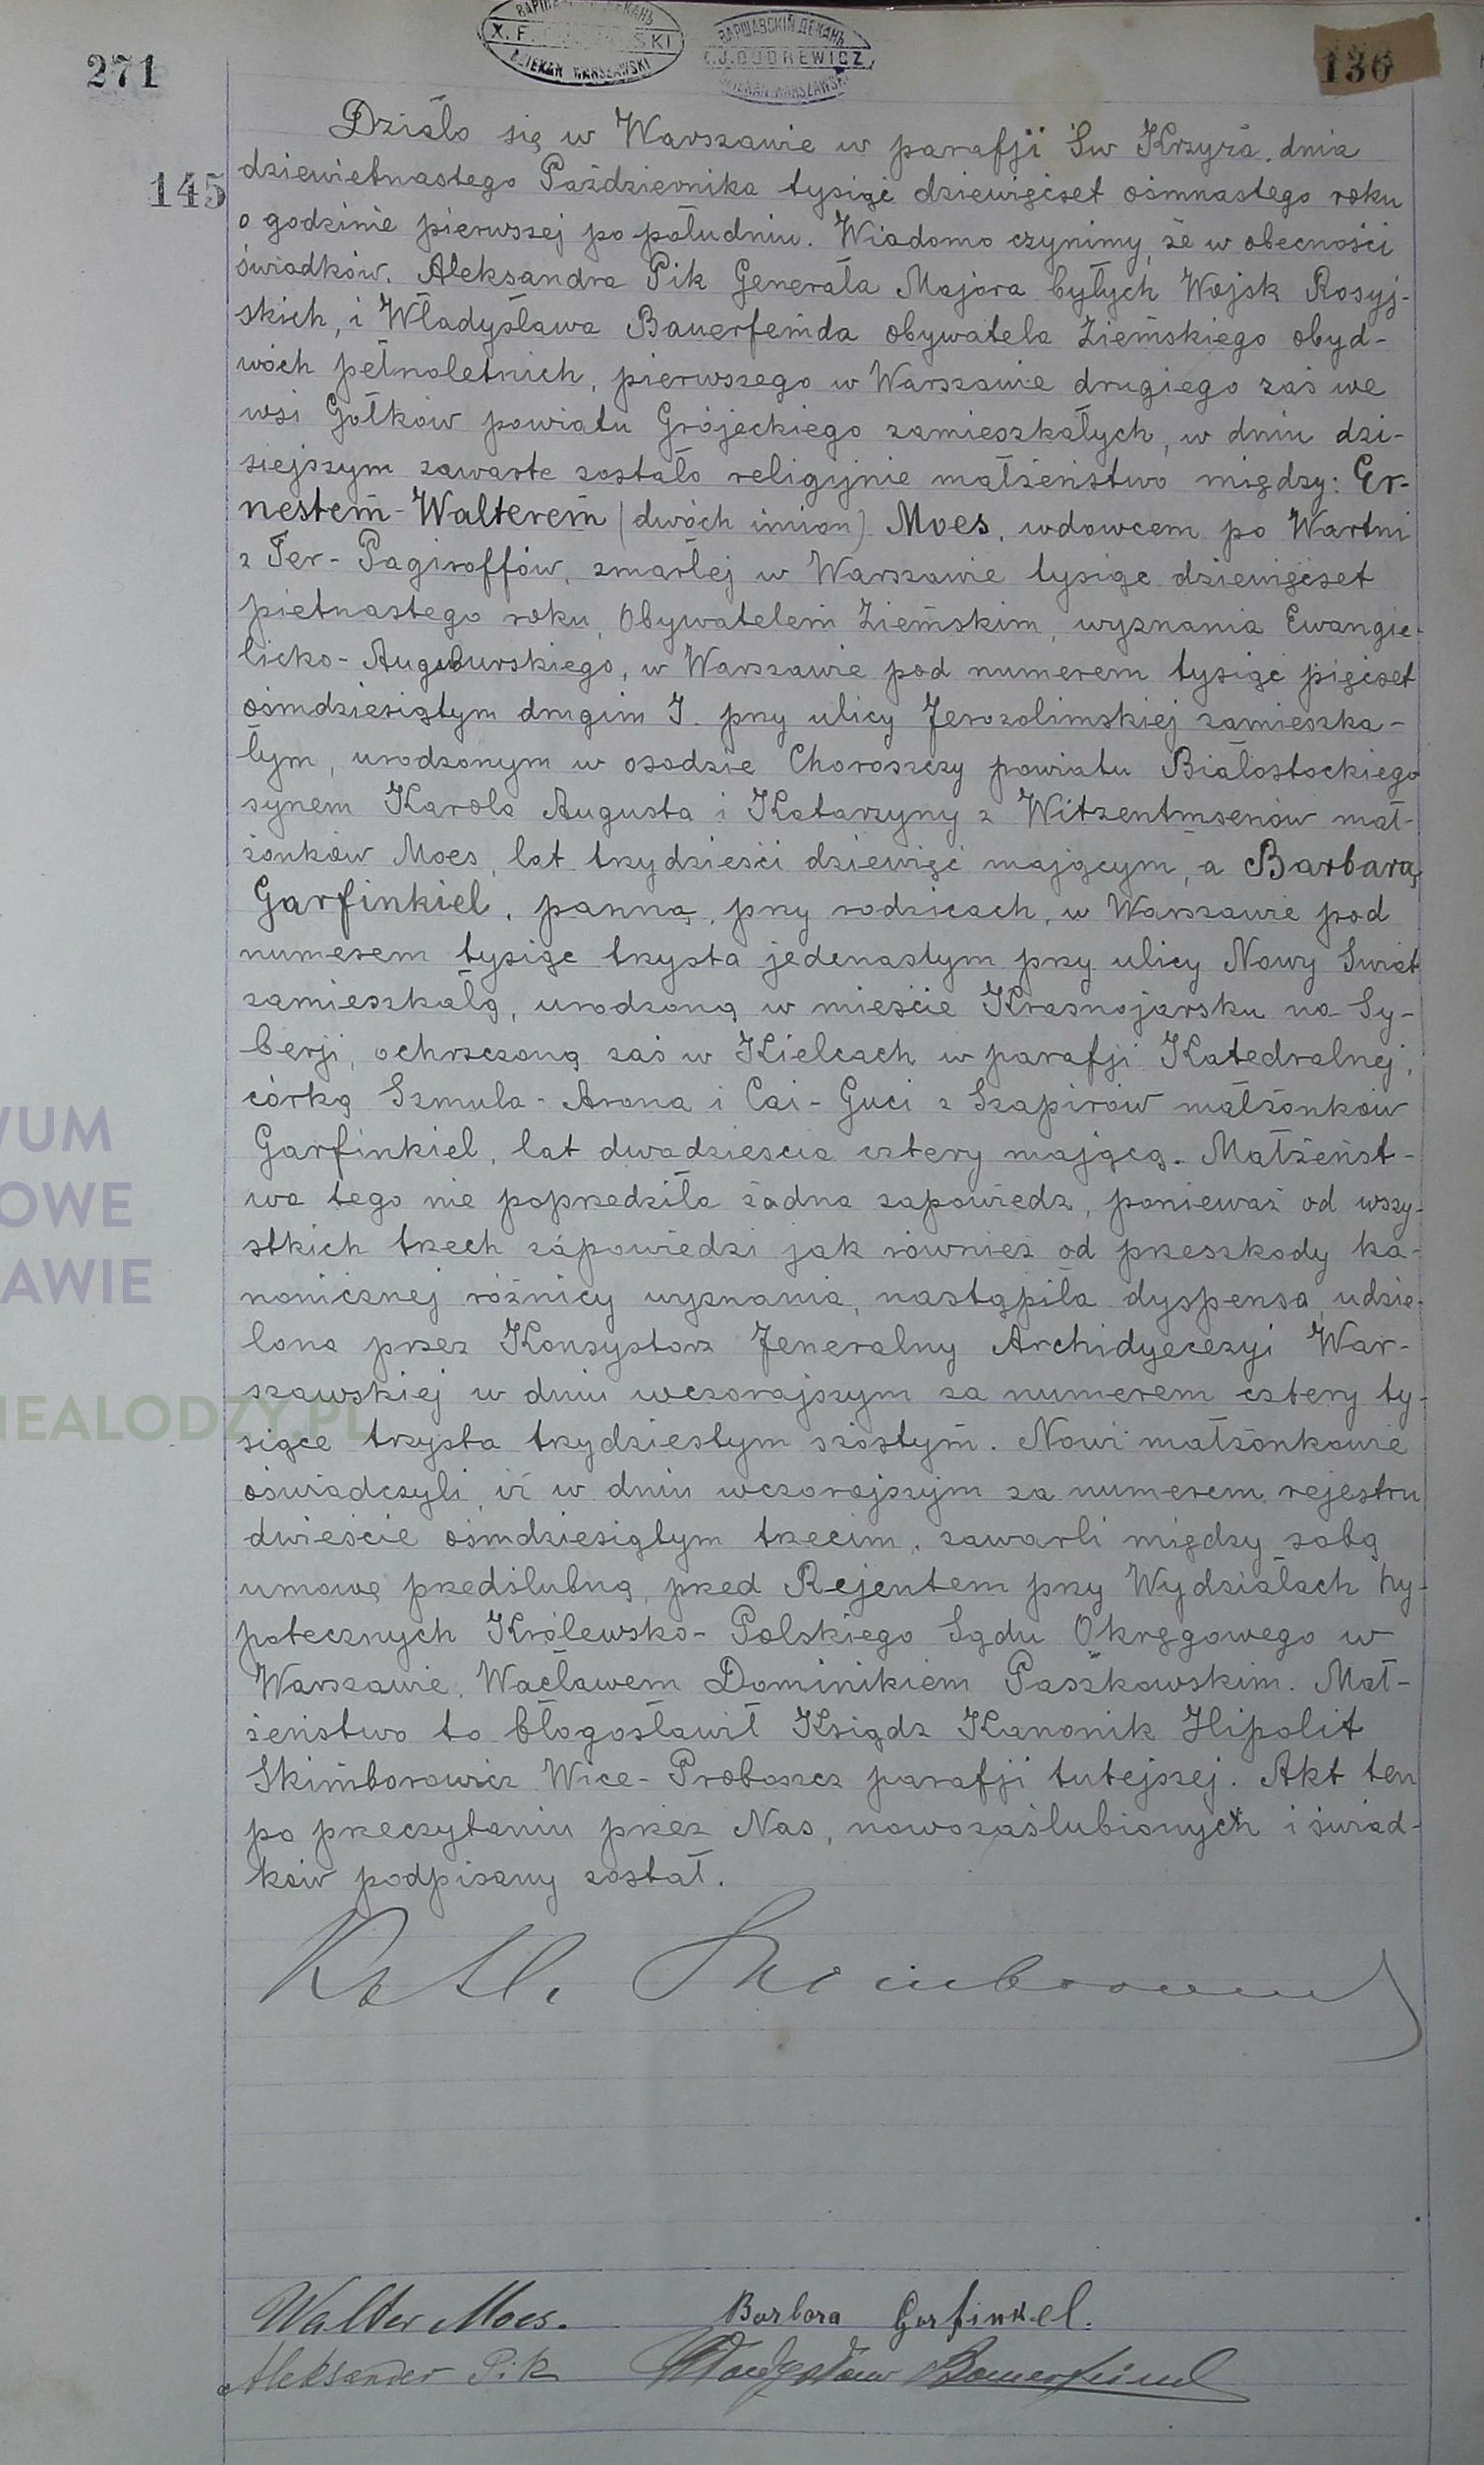 271
136
ВАРШАВСКІЙ ДЕКАНЪ
X. F. SKI
DZIEKAN WARSZAWSKI
ВАРШАВСКІЙ ДЕКАНЪ
DUDREWICZ
DZIEKAN WARSZAWSKI
Działo się w Warszawie w parafji Św Krzyża, dnia
145
dziewietnastego Października tysiąc dziewięćset ośmnastego roku
o godzinie pierwszej po południu. Wiadomo czynimy, że w obecności
świadków, Aleksandra Pik Generała Majora byłych Wojsk Rosyj-
skich, i Władysława Bauerfeinda obywatela Ziemskiego obyd-
wóch pełnoletnich, pierwszego w Warszawie drugiego zaś we
wsi Gołków powiatu Grójeckiego zamieszkałych, w dniu dzi-
siejszym zawarte zostało religijnie małżeństwo między: Er-
nestem-Walterem (dwóch imion) Moes, wdowcem po Wartni
z Ter-Pagiroffów, zmarłej w Warszawie tysiąc dziewięćset
pietnastego roku, Obywatelem Ziemskim, wyznania Ewangie-
licko-Augsburskiego, w Warszawie pod numerem tysiąc pięćset
ośmdziesiątym drugim J. przy ulicy Jerozolimskiej zamieszka-
łym, urodzonym w osadzie Choroszczy powiatu Białostockiego
synem Karola Augusta i Katarzyny z Witzentmsenów mał-
żonków Moes, lat trzydzieści dziewięć mającym, a Barbarą
Garfinkiel, panną, przy rodzicach, w Warszawie pod
numerem tysiąc trzysta jedenastym przy ulicy Nowy Świat
zamieszkałą, urodzoną w mieście Krasnojarsku na Sy-
berji, ochrzczoną zaś w Kielcach w parafji Katedralnej,
córką Szmula-Arona i Cai-Guci z Szapirów małżonków
Garfinkiel, lat dwadzieścia cztery mającą. Małżeńst-
wa tego nie poprzedziła żadna zapowiedz, ponieważ od wszy-
stkich trzech zapowiedzi jak również od przeszkody ka-
nonicznej różnicy wyznania, nastąpiła dyspensa, udzie-
lona przez Konsystorz Jeneralny Archidyecezyi War-
szawskiej w dniu wczorajszym za numerem cztery ty-
siące trzysta trzydziestym szóstym. Nowi małżonkowie
oświadczyli, iż w dniu wczorajszym za numerem rejestru
dwieście ośmdziesiątym trzecim, zawarli między sobą
umowę przedślubną, przed Rejentem przy Wydziałach hy-
potecznych Królewsko-Polskiego Sądu Okręgowego w
Warszawie, Wacławem Dominikiem Paszkowskim. Mał-
żeństwo to błogosławił Ksiądz Kanonik Hipolit
Skimborowicz Wice-Proboszcz parafji tutejszej. Akt ten
po przeczytaniu przez Nas, nowozaślubionych i świad-
ków podpisany został.
Skimborowicz
Walter Moes. Barbara Garfinkel.
Aleksander Pik Władysław Bauerfeind
WUM
OWE
AWIE
NEALODZY.PL